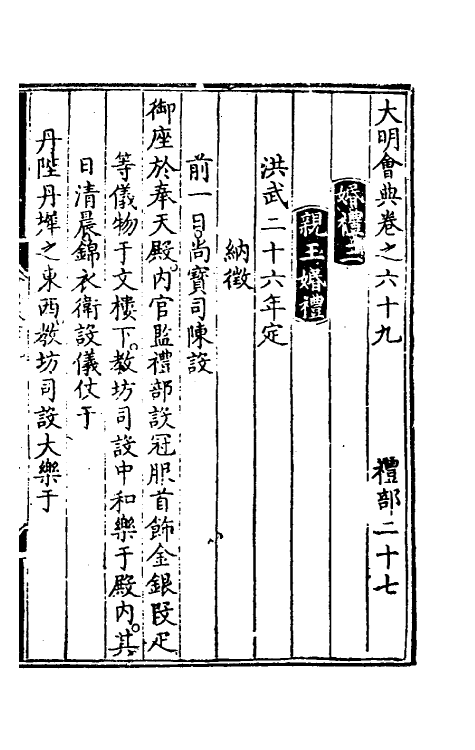 大明會典卷之六十九 禮部二十七
婚禮三
親王婚禮
洪武二十六年定
納徵
前一日。尚寶司陳設
御座於奉天殿。內官監禮部設冠服首飾金銀段疋
等儀物于文樓下。教坊司設中和樂于殿內。其
日清晨錦衣衛設儀仗于
丹陛丹墀之東西。教坊司設大樂于